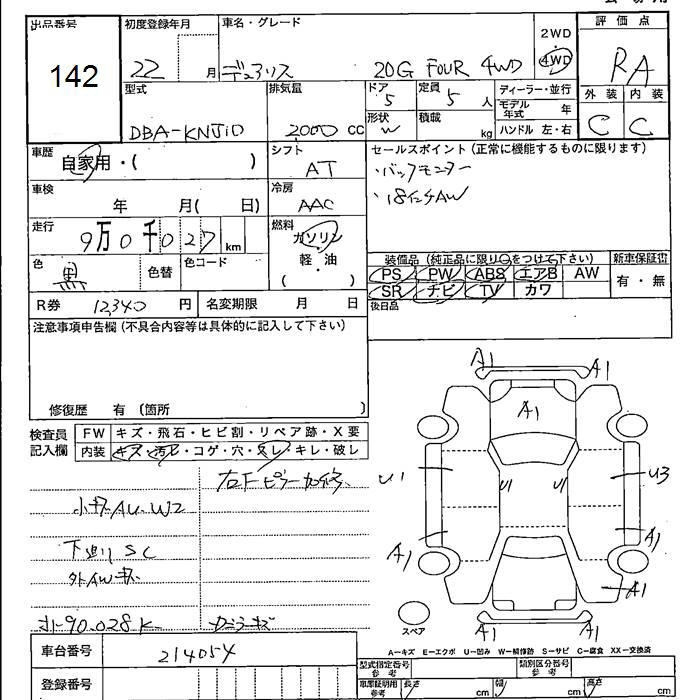 出品番号
142
初度登録年月
22 月
車名・グレード
デュアリス 20G FOUR 4WD
2WD
・
4WD
評価点
RA
外装 内装
C C
型式
DBA-KNJ10
排気量
2000 cc
ドア
5
定員
5 人
形状
W
積載
kg
ディーラー・並行
モデル年式 年
ハンドル 左・右
車歴
自家用・( )
シフト
AT
車検
年 月( 日)
冷房
AAC
走行
9万0千027 km
燃料
ガソリン
・
軽・油
( )
色
黒
色替
色コード
R券 12340 円
名変期限 月 日
セールスポイント(正常に機能するものに限ります)
・バックモニター
・18インチAW
装備品(純正品に限り○をつけて下さい)
PS PW ABS エアB AW
SR ナビ TV カワ
新車保証書
有・無
後日品
注意事項申告欄(不具合内容等は具体的に記入して下さい)
修復歴 有(箇所 )
検査員
記入欄
FW キズ・飛石・ヒビ割・リペア跡・X要
内装 キズ・汚レ・コゲ・穴・スレ・キレ・破レ
AW
下廻り SC
外AWキズ
90.028K
A1
A1
A1
U1
U1
U1
U3
A1
A1
A1
A1
A1
スペア
A－キズ E－エクボ U－凹み W－補修跡 S－サビ C－腐食 XX－交換済
車台番号 214054
登録番号
型式指定番号
参考
類別区分番号
参考
車庫証明用
参考
長さ cm 幅 cm 高さ cm